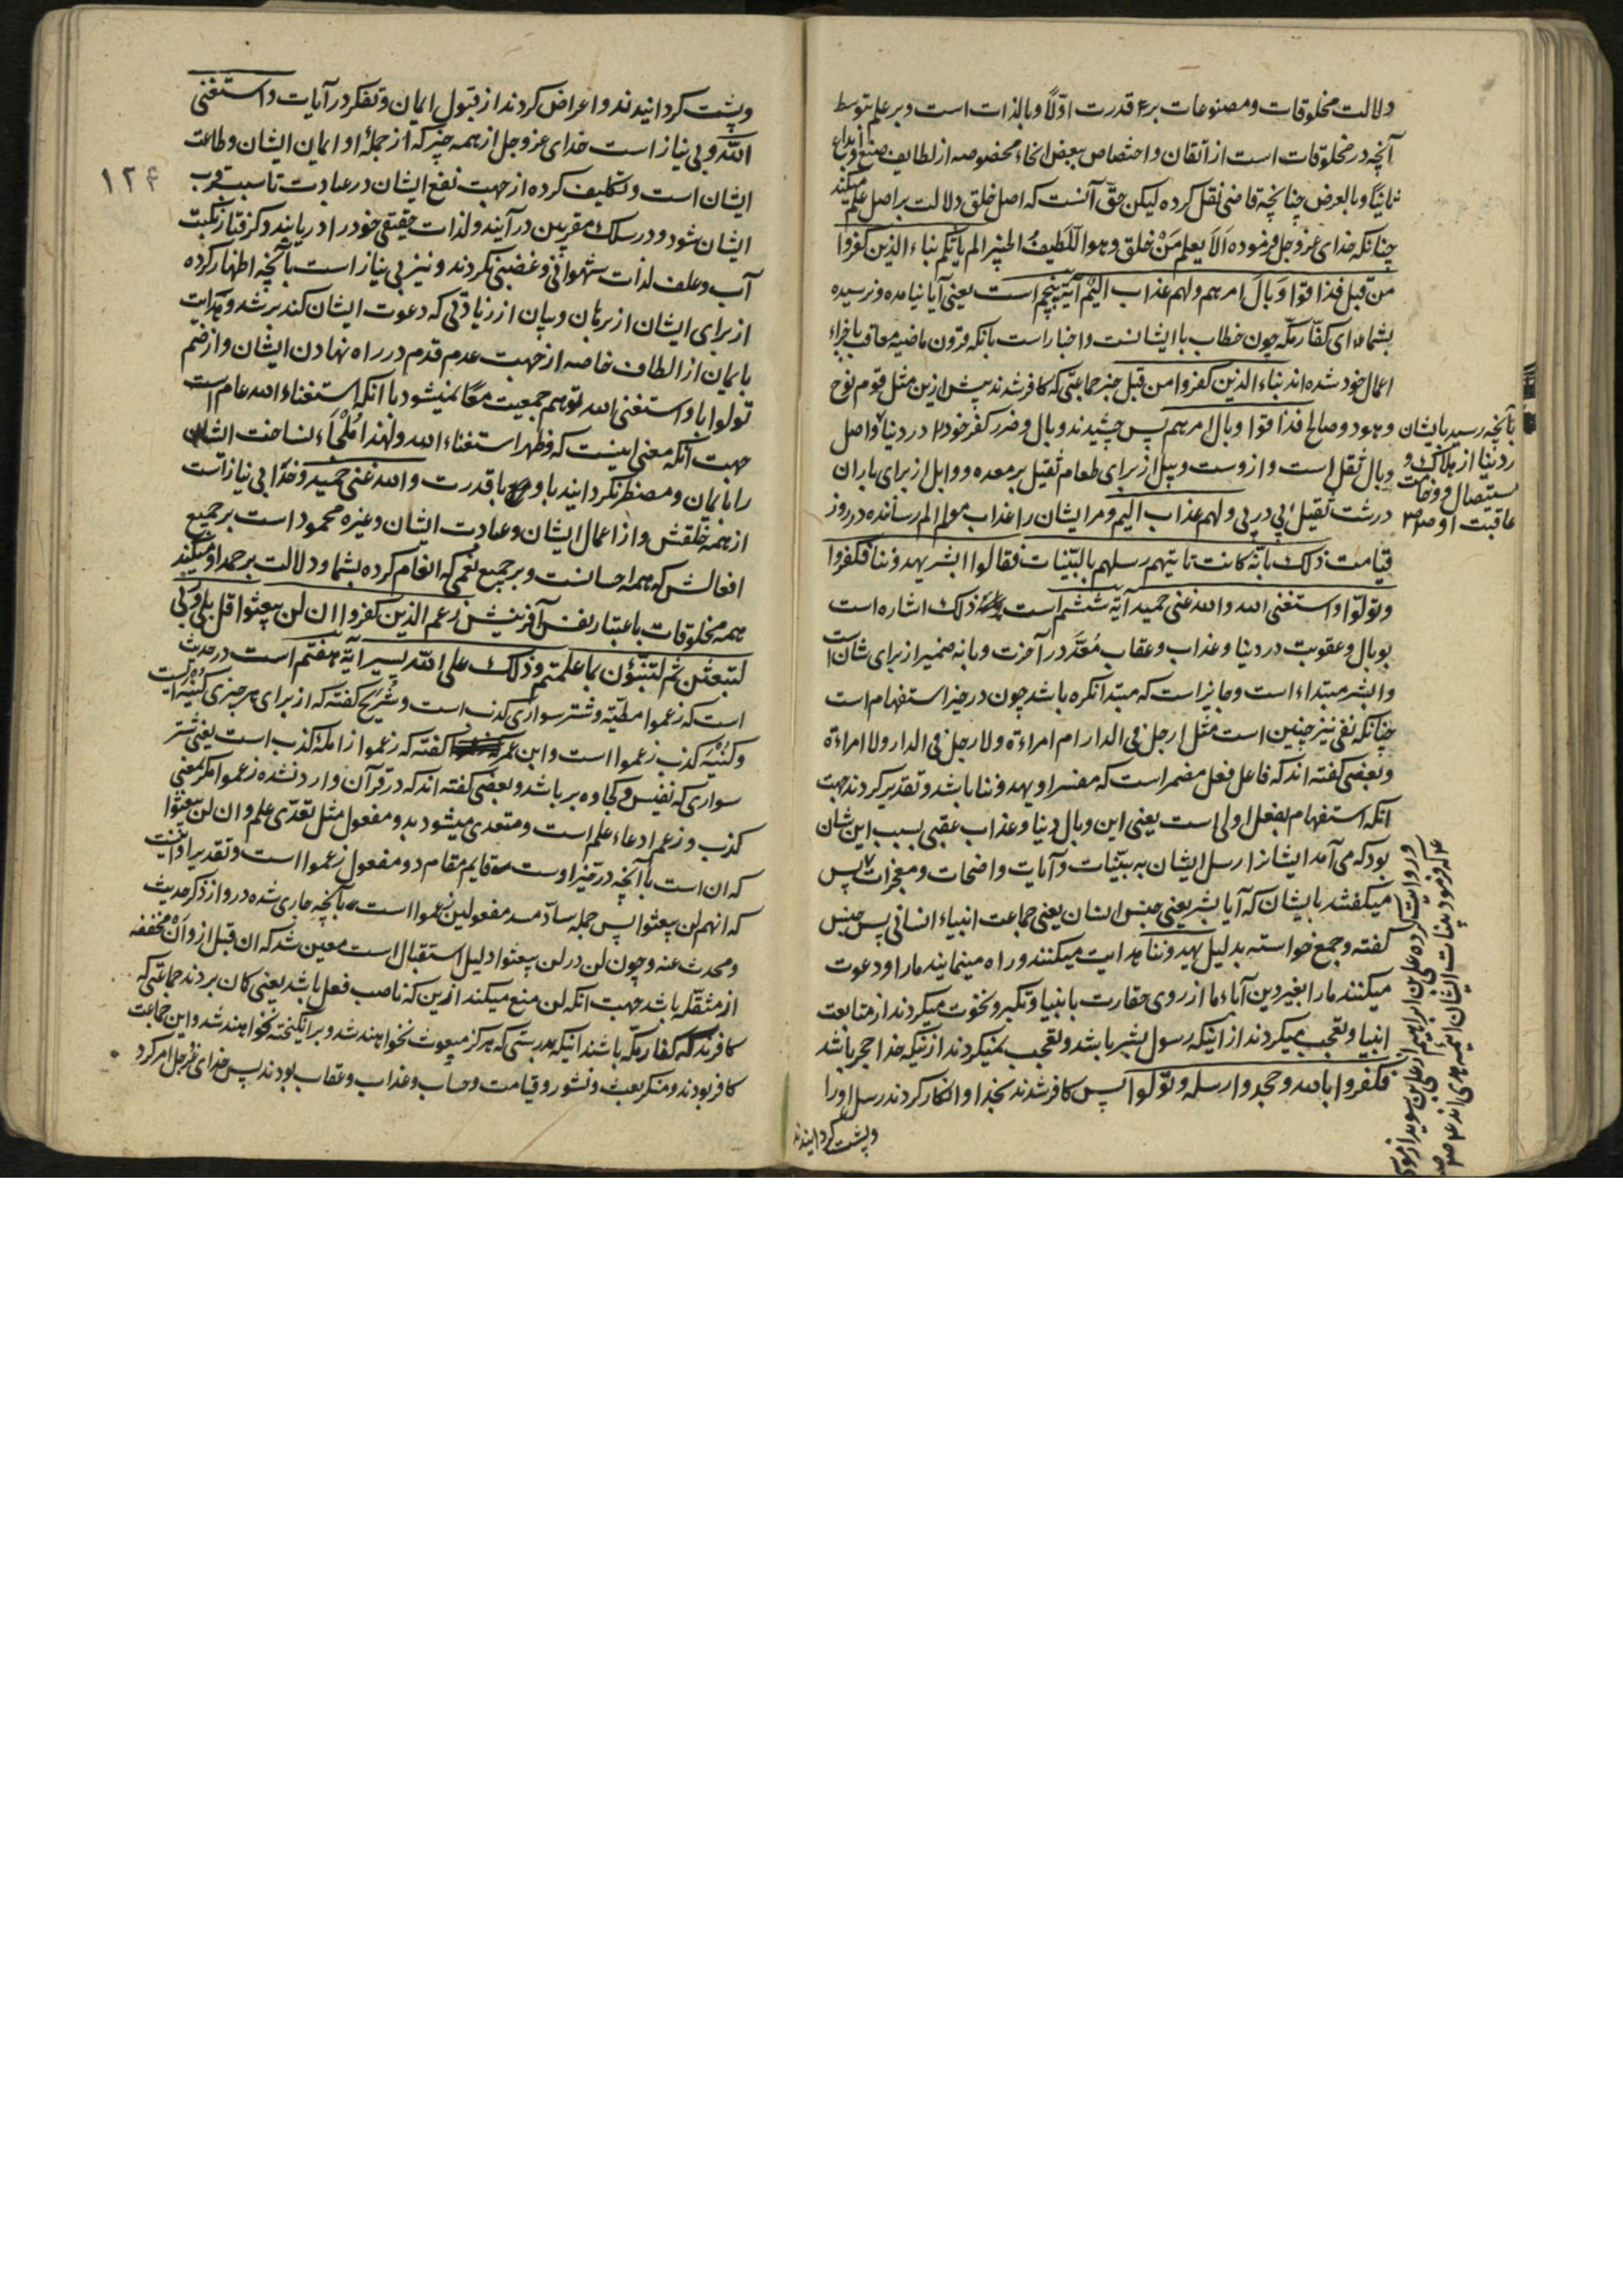 دلالت مخلوقات و مصنوعات بر قدرت اوّلاً و بالذات است و بر علم بتوسط
آنچه در مخلوقات است از اتقان و اختصاص ببعض انحاء مخصوصه از لطایف صنع و بدایع
ثانیًا و بالعرض چنانچه قاضی نقل کرده لیکن حقّ آنست که اصل خلق دلالت بر اصل علم میکند
چنانکه خدای عز و جل فرموده اَلَا یعلم مَنْ خلق و هو اللّطیفُ الخبیر الم یأتکم نباء الذین کفروا
من قبل فذاقوا وَبالَ امرهم و لهم عذاب الیم آیهٔ پنجم است یعنی آیا نیامده و نرسیده
بشما ای کفّار مکّه چون خطاب با ایشانست و اخبار است بانکه قرون ماضیه معاقب باجزاء
اعمال خود شده‌اند نباء الذین کفروا من قبل خبر جماعتی که کافر شدند پیش ازین مثل قوم نوح
و هود و صالح فذاقوا وبال امرهم پس چشیدند وبال و ضرر کفر خود را در دنیا و اصل
وبال ثقل است و ازوست وبیل از برای طعام ثقیل بر معده و وابل از برای باران
درشت ثقیل پی در پی و لهم عذاب الیم و مر ایشان را عذاب مولم الم رسانده در روز
قیامت ذلک بانّه کانت تاتیهم رسلهم بالبیّنات فقالوا ابشر یهدوننا فکفروا
و تولّوا و استغنی الله و الله غنی حمید آیهٔ ششم است ذلک اشاره است
بوبال و عقوبت در دنیا و عذاب و عقاب مُعَدّ در آخرت و بانه ضمیر از برای شان است
و ابشر مبتداء است و جایز است که مبتدا نکره باشد چون در حیز استفهام است
چنانکه نفی نیز چنین است مثل ارجل فی الدار ام امراءة و لا رجل فی الدار ولا امراءة
و بعضی گفته‌اند که فاعل فعل مضمر است که مفسر او یهدوننا باشد و تقدیر کردند جهت
آنکه استفهام بفعل اولی است یعنی این وبال دنیا و عذاب عقبی بسبب این شان
بود که می‌آمد ایشانرا رسل ایشان به بیّنات و آیات واضحات و معجزات پس
میگفتند بایشان که آیا بشر یعنی جنس انسان یعنی جماعت انبیاء انسانی پس جنس
گفته و جمع خواسته بدلیل یهدوننا هدایت میکنند و راه مینمایند ما را و دعوت
میکنند ما را بغیر دین آباء ما از روی حقارت بانبیا و تکبر و نخوت میکردند از متابعت
انبیا و تعجب میکردند از اینکه رسول بشر باشد و تعجب نمیکردند از اینکه خدا حجر باشد
فکفروا بالله و جحدوا رسله و تولوا پس کافر شدند بخدا و انکار کردند رسل او را
و پشت گردانیدند
بآنچه رسید بایشان
در دنیا از هلاک و
استیصال و وخامت
عاقبت او صح
و روایت کرده علی بن ابراهیم از علی بن سوید از
که فرمود بینات ایشان ائمه هدی‌اند
۱۲۴
و پشت گردانیدند و اعراض کردند از قبول ایمان و تفکر در آیات و استغنی
الله و بی نیاز است خدای عز و جل از همه چیز که از جملهٔ او ایمان ایشان و طاعت
ایشان است و تکلیف کرده از جهت نفع ایشان در عبادت تا سبب قرب
ایشان شود و در سلک مقربین در آیند و لذات حقیقی خود را دریابند و گرفتار
آب و علف لذات شهوانی و غضبی نکردند و نیز بی نیاز است بآنچه اظهار کرده
از برای ایشان از برهان و بیان از زیادتی که دعوت ایشان کند برشد و هدایت
بایمان از الطاف خاصه از جهت عدم قدم در راه نهادن ایشان و از ضم
تولوا با و استغنی الله توهم جمعیت معًا نمیشود با آنکه استغناء الله عام است
جهت آنکه معنی اینست که و ظهر استغناء الله و لهذا مُلْجَاء نساخت ایشان
را بایمان و مضطر نکردانید با وجود با قدرت و الله غنی حمید و خدا بی نیاز است
از همه خلقش و از اعمال ایشان و عبادت ایشان و غیره محمود است بر جمیع
افعالش که همه احسانست و بر جمیع نعمی که انعام کرده بشما و دلالت بر حمد او میکند
همه مخلوقات باعتبار نفس آفرینش زعم الذین کفروا ان لن یبعثوا قل بلی و ربی
لتبعثن ثم لتنبّؤن بما عملتم و ذلک علی الله یسیر آیهٔ هفتم است در حدیث
است که زعموا مطیّه و شتر سواری کذب است و شُرَیح گفته که از برای هر چیزی کنیه است
و کُنْیَه کذب زعموا است و ابن عمر گفته که زعموا زامله کذب است یعنی شتر
سواری که نفیس و کجاوه بر باشد و بعضی گفته‌اند که در قرآن وارد نشده زعموا مگر بمعنی
کذب و زعم ادعاء علم است و متعدی میشود بدو مفعول مثل تعدّی علم و ان لن یبعثوا
که ان است با آنچه در حیز اوست قایم مقام دو مفعول زعموا است و تقدیر او اینست
که انهم لن یبعثوا پس جمله سادّ مسد مفعولین زعموا است بآنچه جاری شده در و از ذکر حدیث
و محدث عنه و چون لن در لن یبعثوا دلیل استقبال است معین شد که ان قبل از و اَنْ مخففه
از مثقله باشد جهت آنکه لن منع میکند ازین که ناصب فعل باشد یعنی گمان بردند جماعتی که
کافرند که کفار مکّه باشند اینکه بدرستی که هرگز مبعوث نخواهند شد و برانگیخته نخواهند شد و این جماعت
کافر بودند و منکر بعث و نشور و قیامت و حساب و عذاب و عقاب بودند پس خدای عز و جل امر کرد